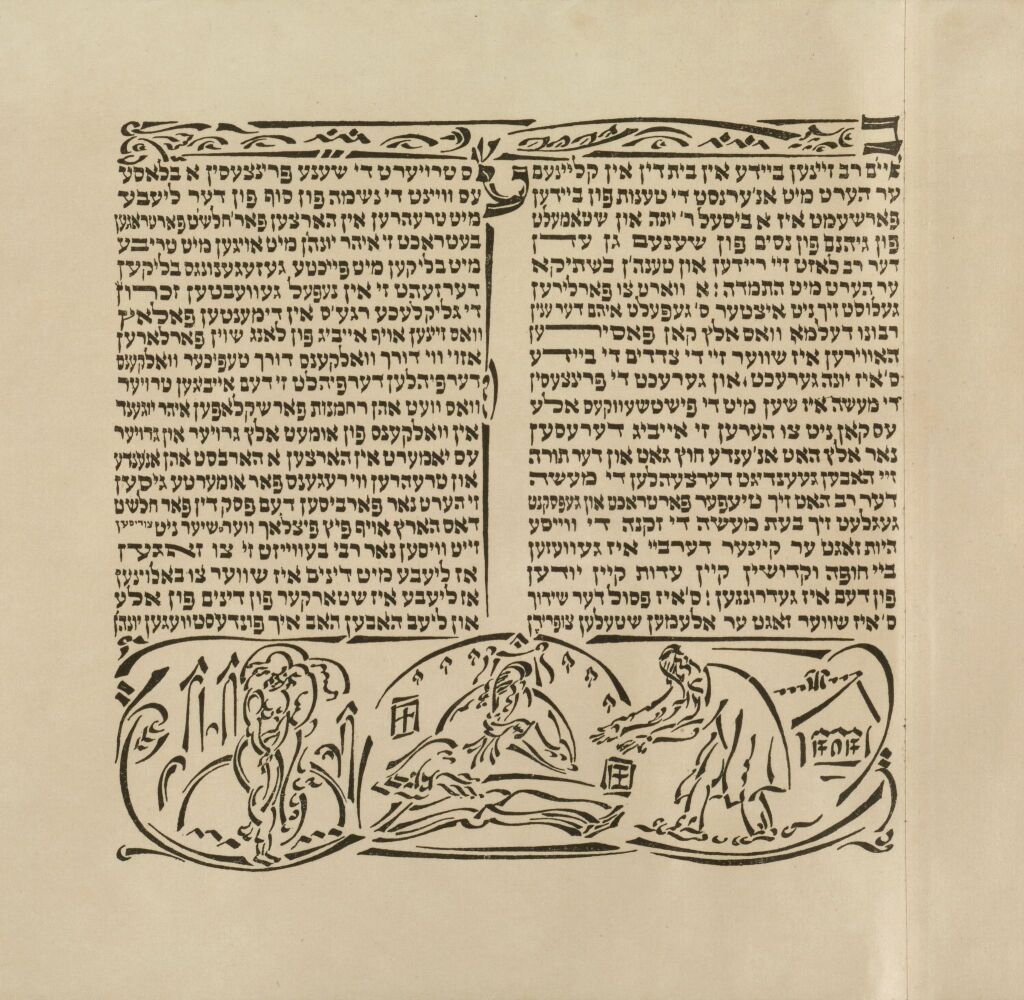 ביים רב זיינען ביידע אין בית דין אין קליינעם
ער הערט מיט אנ׳ערנסט די טענות פון ביידען
פארשעמט איז א ביסעל ר׳ יונה און שטאמעלט
פון גיהנם פון נסים פון שענעם גן עדן
דער רב לאזט זיי ריידען און טענה׳ן בשתיקא
ער הערט מיט התמדה: א ווארט צו פארלירען
געלוסט זיך ניט איצטער, ס׳ געפעלט איהם דער ענין
רבונו דעלמא וואס אלץ קאן פאסירען
האווירען איז שווער זיי די צדדים די ביידע
ס׳איז יונה גערעכט, און גערעכט די פרינצעסין
די מעשה איז שען מיט די פישטשעווקעס אלע
עס קאן ניט צו הערען זי אייביג דערעסען
נאר אלץ האט אנ׳ענדע חוץ גאט און דער תורה
זיי האבען געענדיגט דערצעהלען די מעשה
דער רב האט זיך טיעפער פארטראכט און געפסקנט
געגלעט זיך בעת מעשה די זקנה די ווייסע
היות זאגט ער קיינער דערביי איז געוועזען
ביי חופה וקדושין קיין עדות קיין יודען
פון דעם איז געדרונגען: ס׳איז פסול דער שידוך
ס׳איז שווער זאגט ער אלעמען שטעלען צופרידן
עס טרויערט די שענע פרינצעסין א בלאסע
עס וויינט די נשמה פון סוף פון דער ליעבע
מיט טרעהרען אין הארצען פאר׳חלשט פארטראגען
בעטראכט זי איהר יונהן מיט אויגען מיט טריבע
מיט בליקען מיט פייכטע געזעגענונגס בליקען
דערזעהט זי אין נעפעל געוועבטען זכרון
די גליקלעכע רגעיס אין דימענטען פאלאץ
וואס זיינען אויף אייביג פון לאנג שוין פארלארען
אזוי ווי דורך וואלקענס דורך טעפיכער וואלקענס
דערפיהלען דערפיהלט זי דעם אייביגען טרויער
וואס וועט אהן רחמנות פארשקלאפען איהר יוגענד
אין וואלקענס פון אומעט אלץ גרויער און גרויער
עס יאמערט אין הארצען א הארבסט אהן אנ׳ענדע
און טרעהרען ווי רעגענס פאר אומערטע גיסען
זי הערט נאר פארביסען דעם פסק דין פאר חלשט
דאס הארץ אויף פיץ פיצלאך ווער שיער ניט צוריסען
זייט וויסען נאר רבי בעווייזט זי צו זאגען
אז ליעבע מיט דינים איז שווער צו באלוינען
אז ליעבע איז שטארקער פון דינים פון אלע
און ליעב האבען האב איך פונדעסטוועגען יונהן